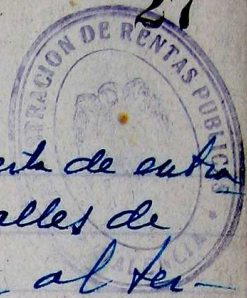 27
TRACION DE RENTAS PUBLICAS
erta de entra
alles de
al ter-